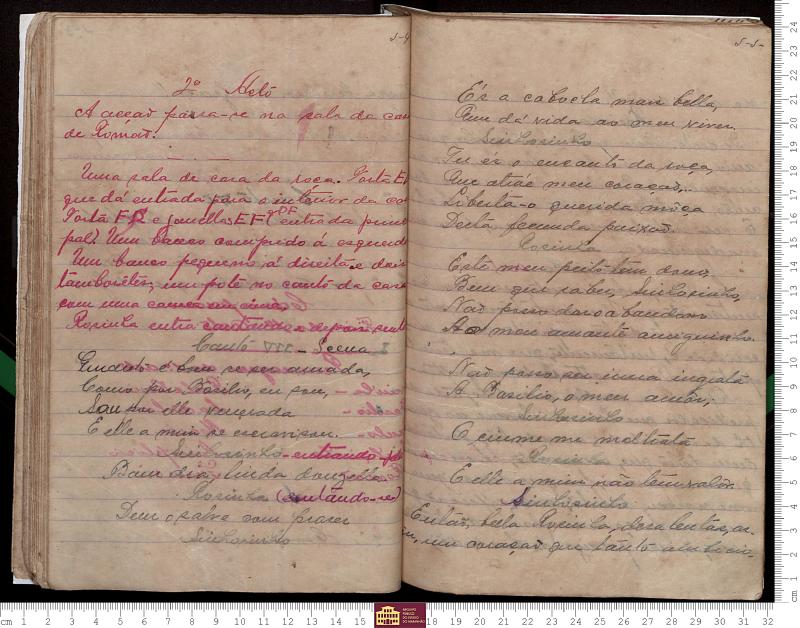 54
2º Acto
A acção passa-se na sala da cas
de Romão.
Uma sala de casa da roça. Porta E
que dá entrada para o interior da ca
Porta e janellas EF entrada princi
pal. Um banco comprido á esquerd
Um banco pequeno á direita e dois
tamboretes, um pote no canto da casa
com uma caneca em cima.
Rosinha entra cantando e depois sent
Canto III - Scena
Quanto é bom se ser amada,
Como por Basilio, eu sou,
Sou por elle venerada
E elle a mim se escravisou.
Sinhosinho - entrando
Bom dia, linda donzella
Rosinha (sentando-se)
Deus o salve com prazer
Sinhosinho
55
És a cabocla mais bella,
Que dá vida ao meu viver.
Sinhosinho
Tu és o encanto da roça,
Que atráe meu coração...
Liberta-o querida môça
Desta fecunda paixão.
Rosinha
Este meu peito tem dono,
Bem que sabes, Sinhosinho,
Não posso dar o abandono
Ao meu amante amiguinho.
Não posso ser uma ingrata
A Basilio, o meu amôr;
Sinhosinho
O ciume me maltrata
Rosinha
E elle a mim não tem valôr.
Sinhosinho
Então, bella Rosinha, desalentas, as-
sim, um coração que tanto ambicio-
cm 1 2 3 4 5 6 7 8 9 10 11 12 13 14 15 18 19 20 21 22 23 24 25 26 27 28 29 30 31 32
ARQUIVO
PÚBLICO
DO ESTADO
DO MARANHÃO
cm 1 2 3 4 5 6 7 8 9 10 11 12 13 14 15 16 17 18 19 20 21 22 23 24